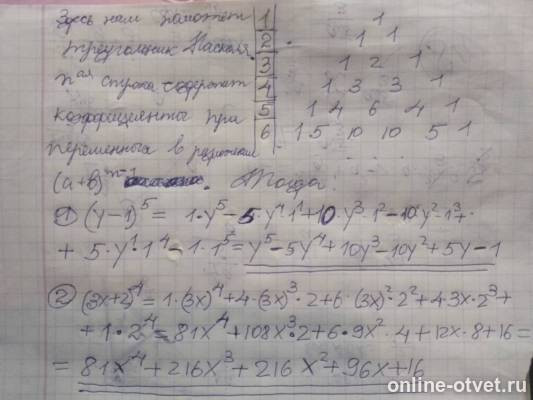 Здесь нам поможет
треугольник Паскаля.
n ая строка содержит
коэффициенты при
переменных в разложении
(a+b)^n-1. Тогда:
1 1
2 1 1
3 1 2 1
4 1 3 3 1
5 1 4 6 4 1
6 1 5 10 10 5 1
① (y-1)^5 = 1·y^5 - 5·y^4·1^1 + 10·y^3·1^2 - 10·y^2·1^3 +
+ 5·y^1·1^4 - 1·1^5 = y^5 - 5y^4 + 10y^3 - 10y^2 + 5y - 1
② (3x+2)^4 = 1·(3x)^4 + 4·(3x)^3·2 + 6·(3x)^2·2^2 + 4·3x·2^3 +
+ 1·2^4 = 81x^4 + 108x^3·2 + 6·9x^2·4 + 12x·8 + 16 =
= 81x^4 + 216x^3 + 216x^2 + 96x + 16
online-otvet.ru